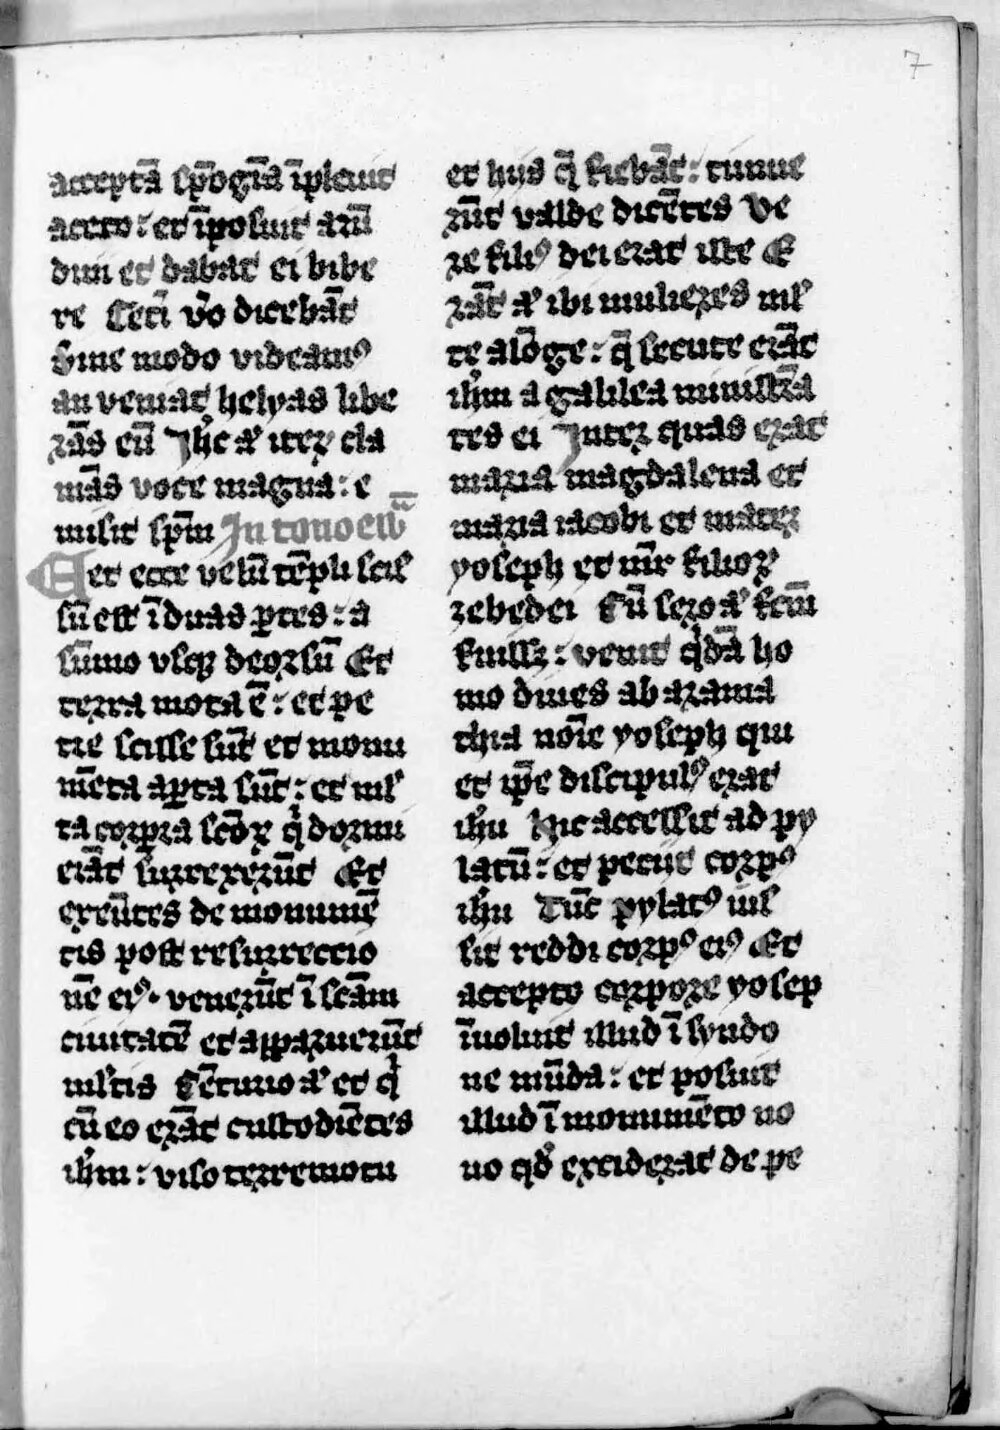 7
acceptā spōgiā īpleuit
aceto : et īposuit arū
dini et dabat ei bibe
re Cetī vo dicebāt
Sine modo videamꝰ
an veniat helyas libe
rās eū Jhc aͭ iteꝝ cla
mās voce magna : e
misit spm In tono ewᷓ
Et ecce velū tēpli scis
sū est ī duas ꝑtes : a
sūmo vsqꝫ deorsū Et
terra mota ē : et pe
tre scisse sūt et monu
mēta aꝑta sūt : et ml
ta corpora scōꝝ q dormi
erāt surrexerūt Et
exeūtes de monumē
tis post resurreccio
nē eiꝰ · venerūt ī scām
ciuitatē et apparuerūt
mltis Cēturio aͭ et q
cū eo erāt custodiētes
ihm : viso terremotu
et hijs q̄ fiebāt : timue
rūt valde dicētes Ve
re filiꝰ dei erat iste E
rāt aͭ ibi mulieres ml
te alōge : q̄ secute erāt
ihm a galilea ministrā
tes ei Inter quas erat
maria magdalena et
maria iacobi et mater
yoseph et mr̄ filioꝝ
zebedei Cū sero aͭ fcm̄
fuissꝫ : venit qͥdā ho
mo diues ab arama
thia noīe yoseph qui
et ip̄e discipulꝰ erat
ihu Hic accessit ad py
latū : et petijt corpꝰ
ihu Tūc pylatꝰ iūs
sit reddi corpꝰ eiꝰ Et
accepto corpore yosep
īuoluit illud ī syndo
ne mūda : et posuit
illud ī monumēto no
uo qd exciderat de pe